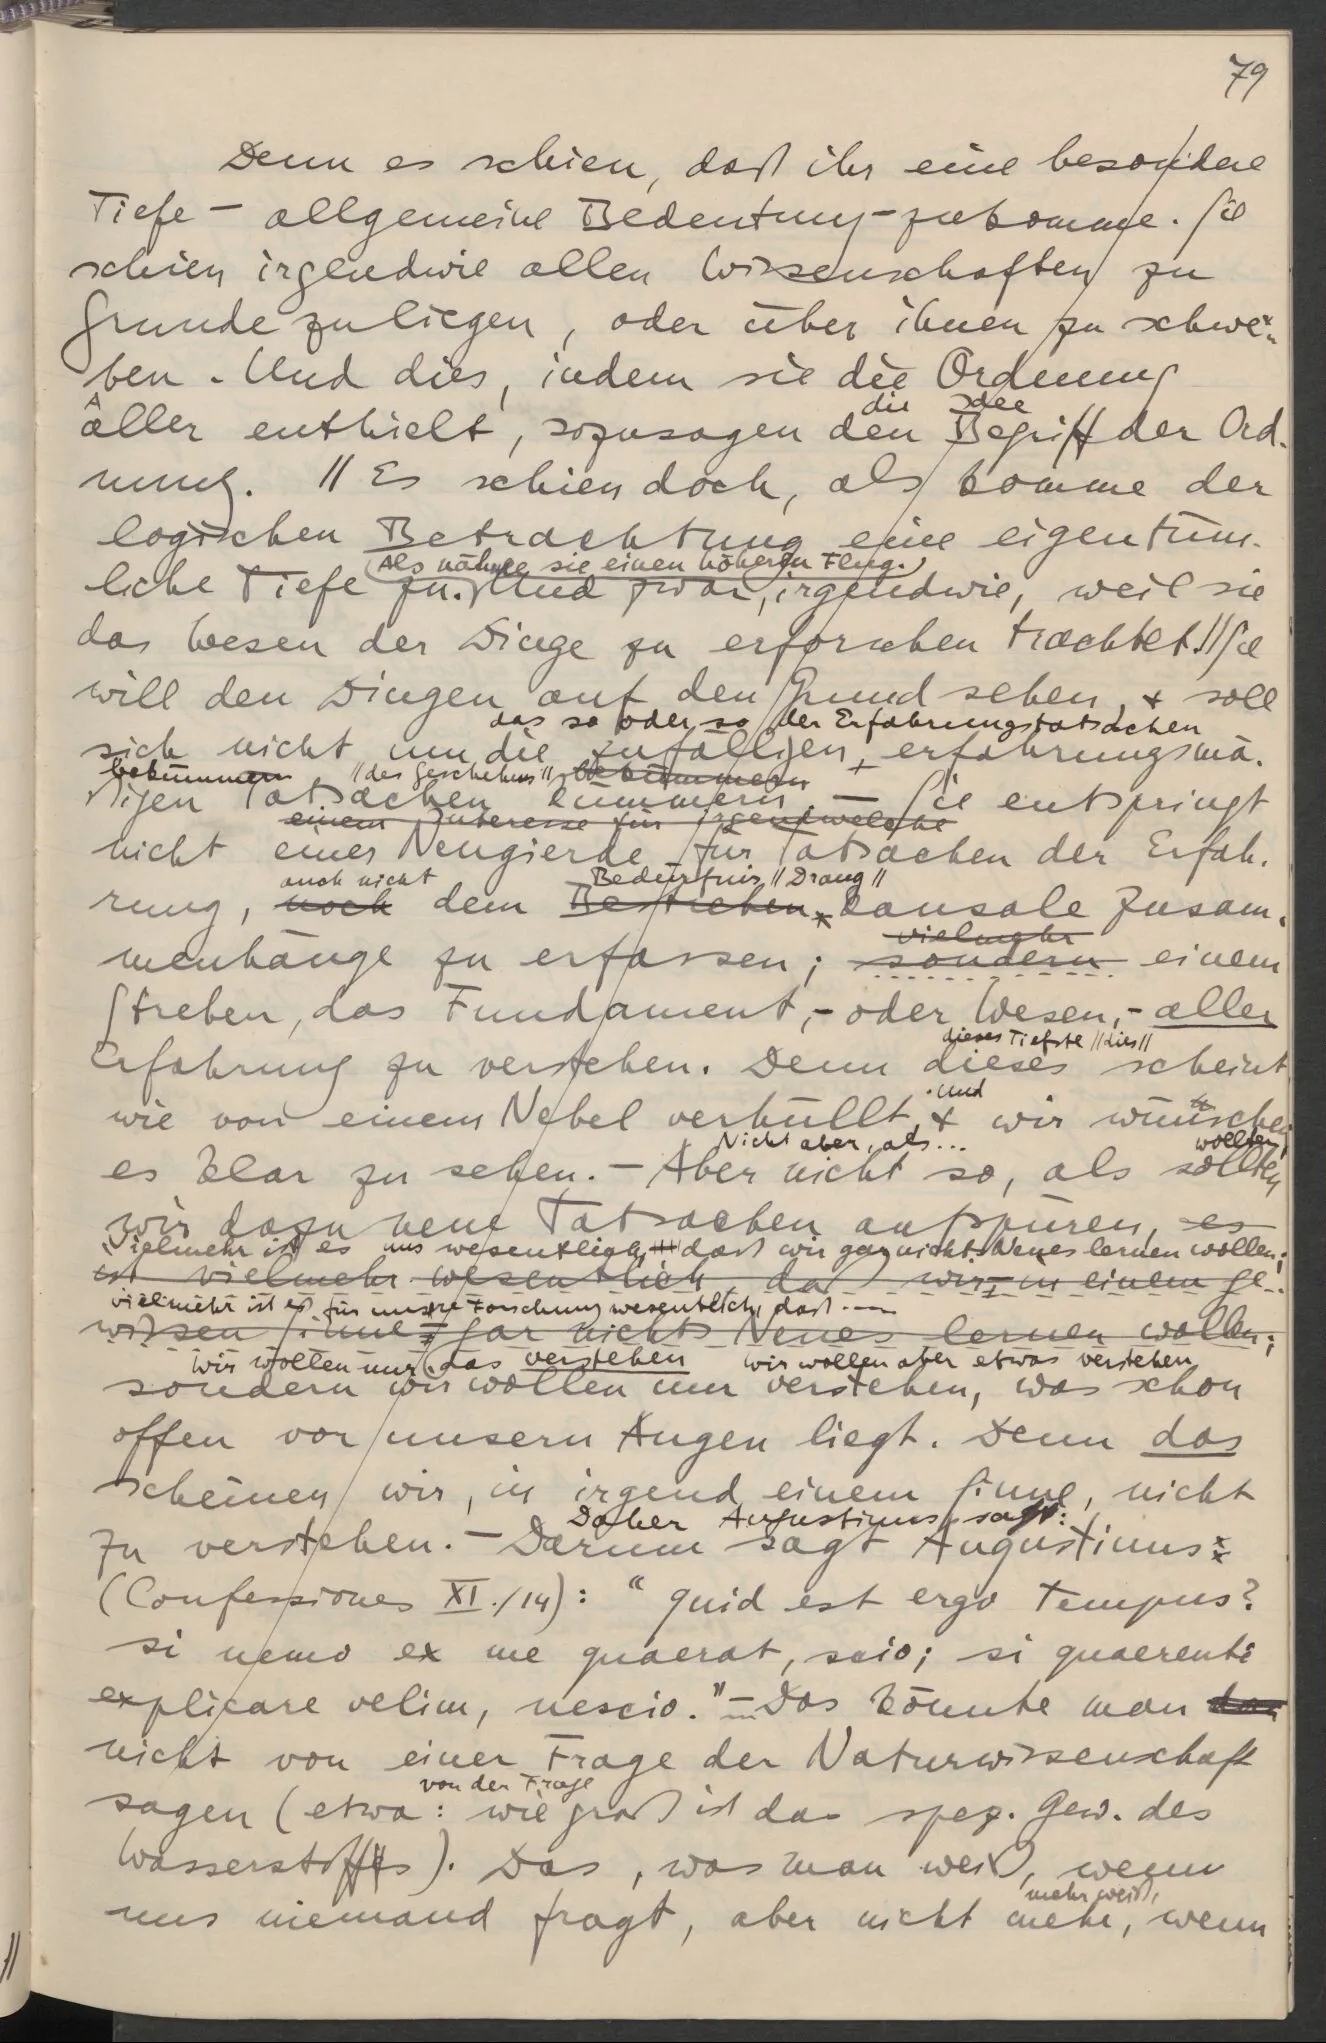 79
Denn es schien, daß ihr eine besondere
Tiefe – allgemeine Bedeutung – zukomme. Sie
schien irgendwie allen Wissenschaften zu
Grunde zu liegen, oder über ihnen zu schwe-
ben. Und dies, indem sie die Ordnung
die Idee
aller enthielt, sozusagen den Begriff der Ord-
nung. // Es schien doch, als komme der
logischen Betrachtung eine eigentüm-
(Als nähme sie einen höheren Flug.)
liche Tiefe zu. Und zwar, irgendwie, weil sie
das Wesen der Dinge zu erforschen trachtet. // Sie
will den Dingen auf den Grund sehen, & soll
das so oder so der Erfahrungstatsachen
sich nicht um die zufälligen, erfahrungsmä-
bekümmern // des Geschehens // bekümmern
ßigen Tatsachen kümmern. — Sie entspringt
einem Interesse für irgendwelche
nicht einer Neugierde für Tatsachen der Erfah-
auch nicht Bedürfnis // Drang //
rung, noch dem Bestreben kausale Zusam-
vielmehr
menhänge zu erfassen; sondern einem
Streben, das Fundament, – oder Wesen, – aller
dieses Tiefste // dies //
Erfahrung zu verstehen. Denn dieses scheint
. Und
wie von einem Nebel verhüllt & wir wünschen
Nicht aber, als... wollten
es klar zu sehen. – Aber nicht so, als sollten
wir dazu neue Tatsachen aufspüren, es
Vielmehr ist es uns wesentlich, daß wir gar nichts Neues lernen wollen;
ist vielmehr wesentlich, daß wir, in einem ge-
vielmehr ist es für unsre Forschung wesentlich, daß ......
wissen Sinne, gar nichts Neues lernen wollen;
wir wollen nur das verstehen wir wollen aber etwas verstehen
sondern wir wollen nur verstehen, was schon
offen vor unsern Augen liegt. Denn das
scheinen wir, in irgend einem Sinne, nicht
Daher Augustinus sagt:
zu verstehen. – Darum sagt Augustinus:
(Confessiones XI./14): “quid est ergo tempus?
si nemo ex me quaerat, scio; si quaerenti
explicare velim, nescio.” – Das könnte man
nicht von einer Frage der Naturwissenschaft
von der Frage
sagen (etwa: wie groß ist das spez. Gew. des
Wasserstoffs). Das, was man weiß, wenn
mehr weiß,
uns niemand fragt, aber nicht mehr, wenn